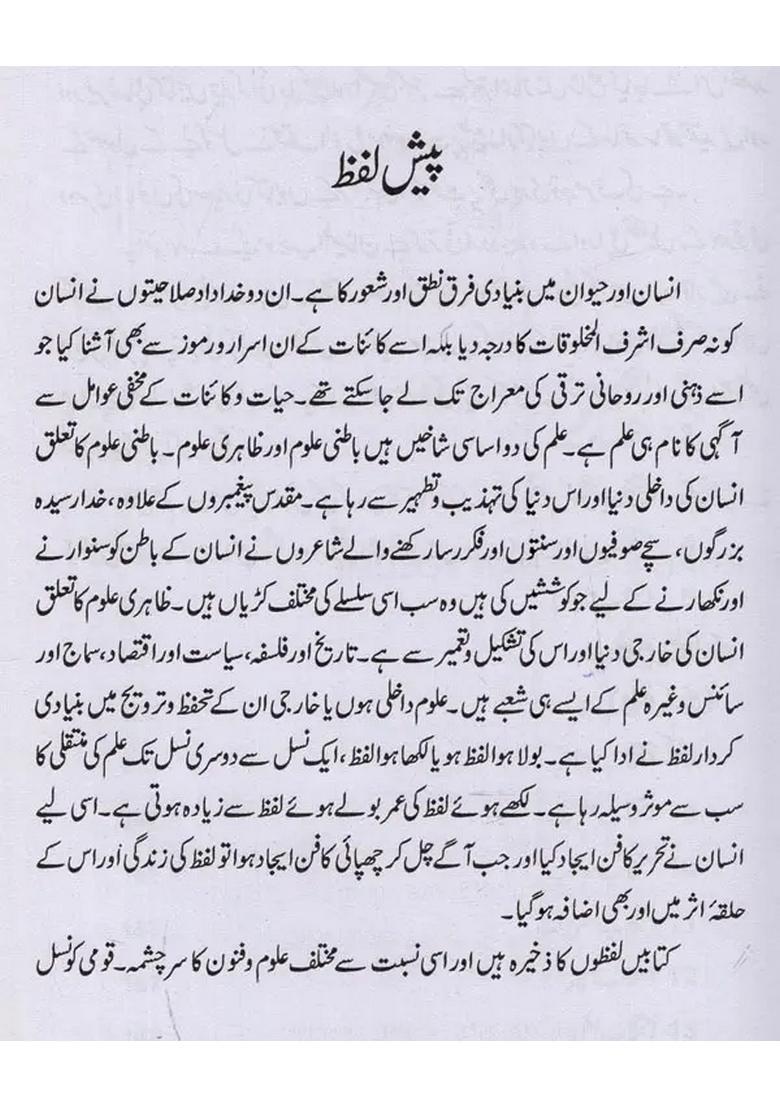 پیش لفظ
انسان اور حیوان میں بنیادی فرق نطق اور شعور کا ہے۔ ان دو خداداد صلاحیتوں نے انسان
کو نہ صرف اشرف المخلوقات کا درجہ دیا بلکہ اسے کائنات کے ان اسرار و رموز سے بھی آشنا کیا جو
اسے ذہنی اور روحانی ترقی کی معراج تک لے جا سکتے تھے۔ حیات و کائنات کے مخفی عوامل سے
آگہی کا نام ہی علم ہے۔ علم کی دو اساسی شاخیں ہیں باطنی علوم اور ظاہری علوم۔ باطنی علوم کا تعلق
انسان کی داخلی دنیا اور اس دنیا کی تہذیب و تطہیر سے رہا ہے۔ مقدس پیغمبروں کے علاوہ، خدا رسیدہ
بزرگوں، سچے صوفیوں اور سنتوں اور فکر رسا رکھنے والے شاعروں نے انسان کے باطن کو سنوارنے
اور نکھارنے کے لیے جو کوششیں کی ہیں وہ سب اسی سلسلے کی مختلف کڑیاں ہیں۔ ظاہری علوم کا تعلق
انسان کی خارجی دنیا اور اس کی تشکیل و تعمیر سے ہے۔ تاریخ اور فلسفہ، سیاست اور اقتصاد، سماج اور
سائنس وغیرہ علم کے ایسے ہی شعبے ہیں۔ علوم داخلی ہوں یا خارجی ان کے تحفظ و ترویج میں بنیادی
کردار لفظ نے ادا کیا ہے۔ بولا ہوا لفظ ہو یا لکھا ہوا لفظ، ایک نسل سے دوسری نسل تک علم کی منتقلی کا
سب سے موثر وسیلہ رہا ہے۔ لکھے ہوئے لفظ کی عمر بولے ہوئے لفظ سے زیادہ ہوتی ہے۔ اسی لیے
انسان نے تحریر کا فن ایجاد کیا اور جب آگے چل کر چھپائی کا فن ایجاد ہوا تو لفظ کی زندگی اور اس کے
حلقۂ اثر میں اور بھی اضافہ ہو گیا۔
کتابیں لفظوں کا ذخیرہ ہیں اور اسی نسبت سے مختلف علوم و فنون کا سرچشمہ۔ قومی کونسل